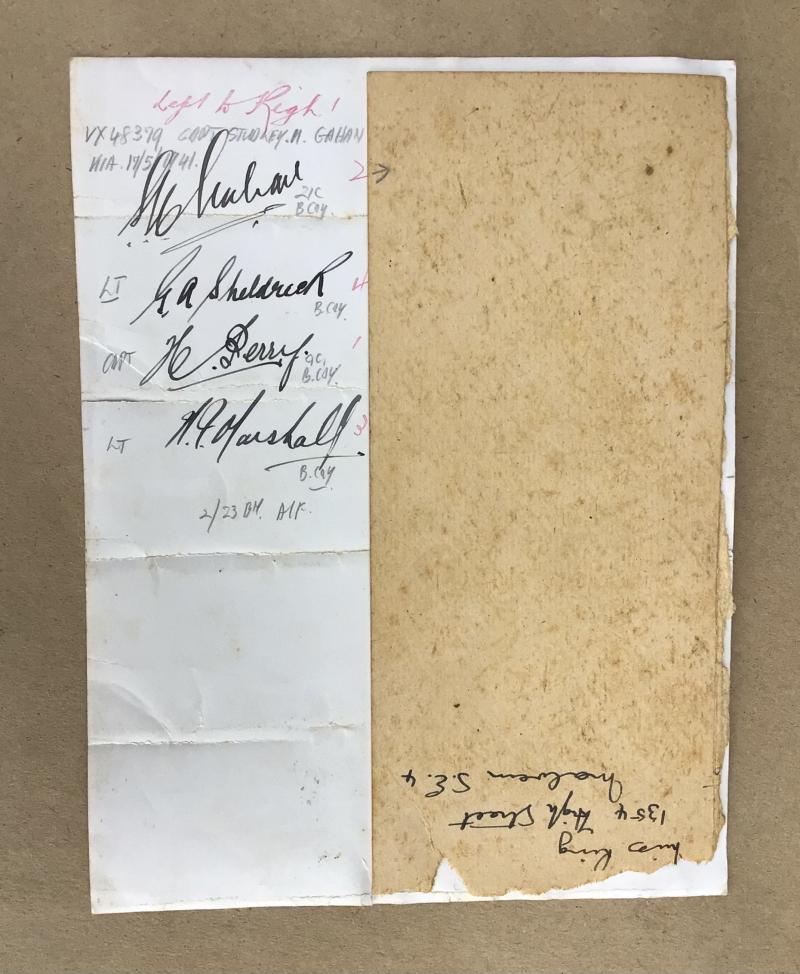 Left to Right
VX48379 CAPT STUDLEY. M. GAHAN
KIA. 17/5/1941. 2 →
SM Gahan 2IC
B Coy.
LT G A Sheldrick 4
B. Coy.
CAPT H. Perry. 1
B. Coy.
LT N. F. Marshall. 3
B. Coy
2/23 BN. AIF.
Miss King
1354 High Street
Malvern S.E.4